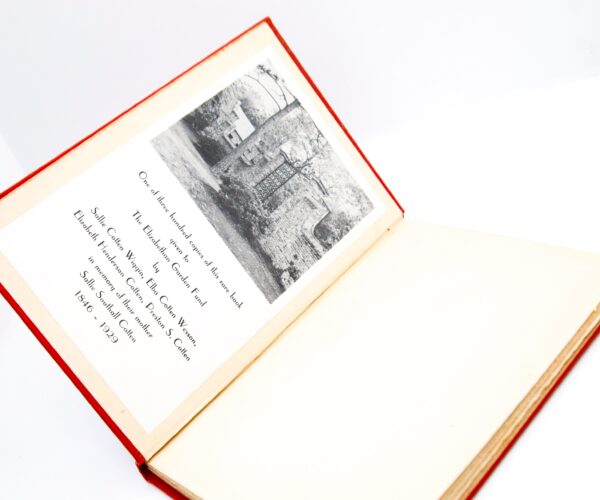 One of three hundred copies of this rare book
given to
The Elizabethan Garden Fund
by
Sallie Cotten Wiggin, Elba Cotten Wesson,
Elizabeth Henderson Cotten, Preston S. Cotten
in memory of their mother
Sallie Southall Cotten
1846 - 1929